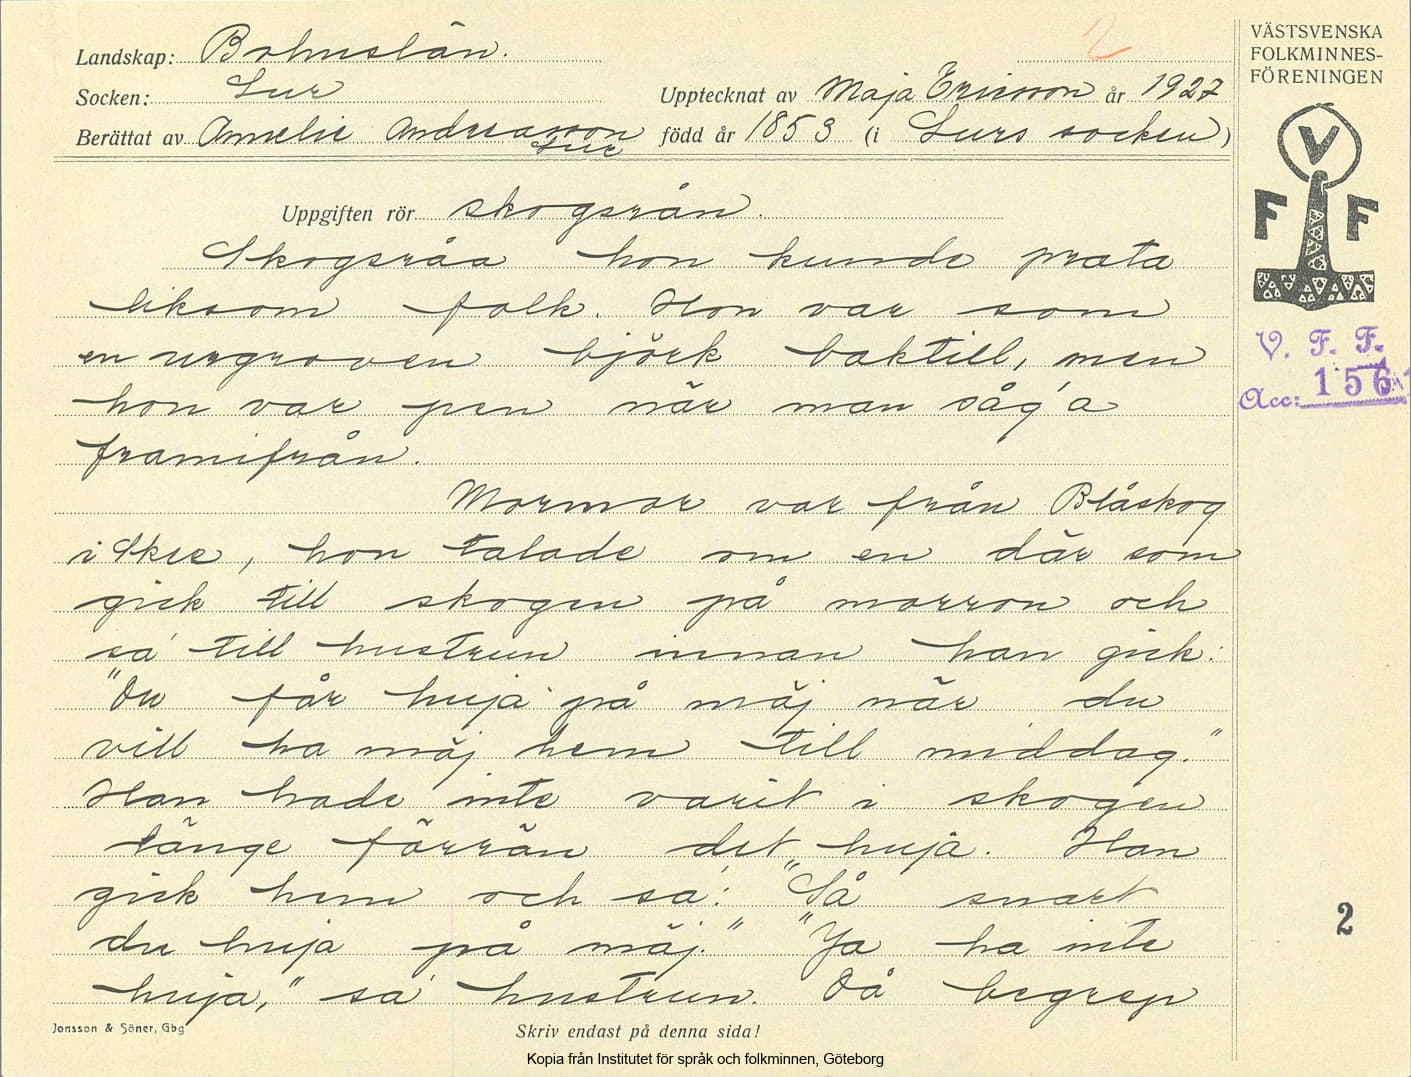 Landskap: Bohuslän.
2
Socken: Lur
Upptecknat av Maja Ericsson år 1927
Berättat av Amelie Andreasson
Lur
född år 1853 (i Lurs socken)
Uppgiften rör skogsrån.
Skogsråa hon kunde prata
liksom folk. Hon var som
en urgroven björk baktill, men
hon var pen när man såg'a
framifrån.
Mormor var från Blåskog
i Skee, hon talade om en där som
gick till skogen på morron och
sa' till hustrun innan han gick:
"Du får huja på mäj när du
vill ha mäj hem till middag."
Han hade inte varit i skogen
länge förrän det huja. Han
gick hem och sa': "Så snart
du huja på mäj." "Ja ha inte
huja," sa' hustrun. Då begrep
Jonsson & Söner, Gbg
Skriv endast på denna sida!
Kopia från Institutet för språk och folkminnen, Göteborg
VÄSTSVENSKA
FOLKMINNES-
FÖRENINGEN
V
F F
V. F. F.
Acc: 1561
2